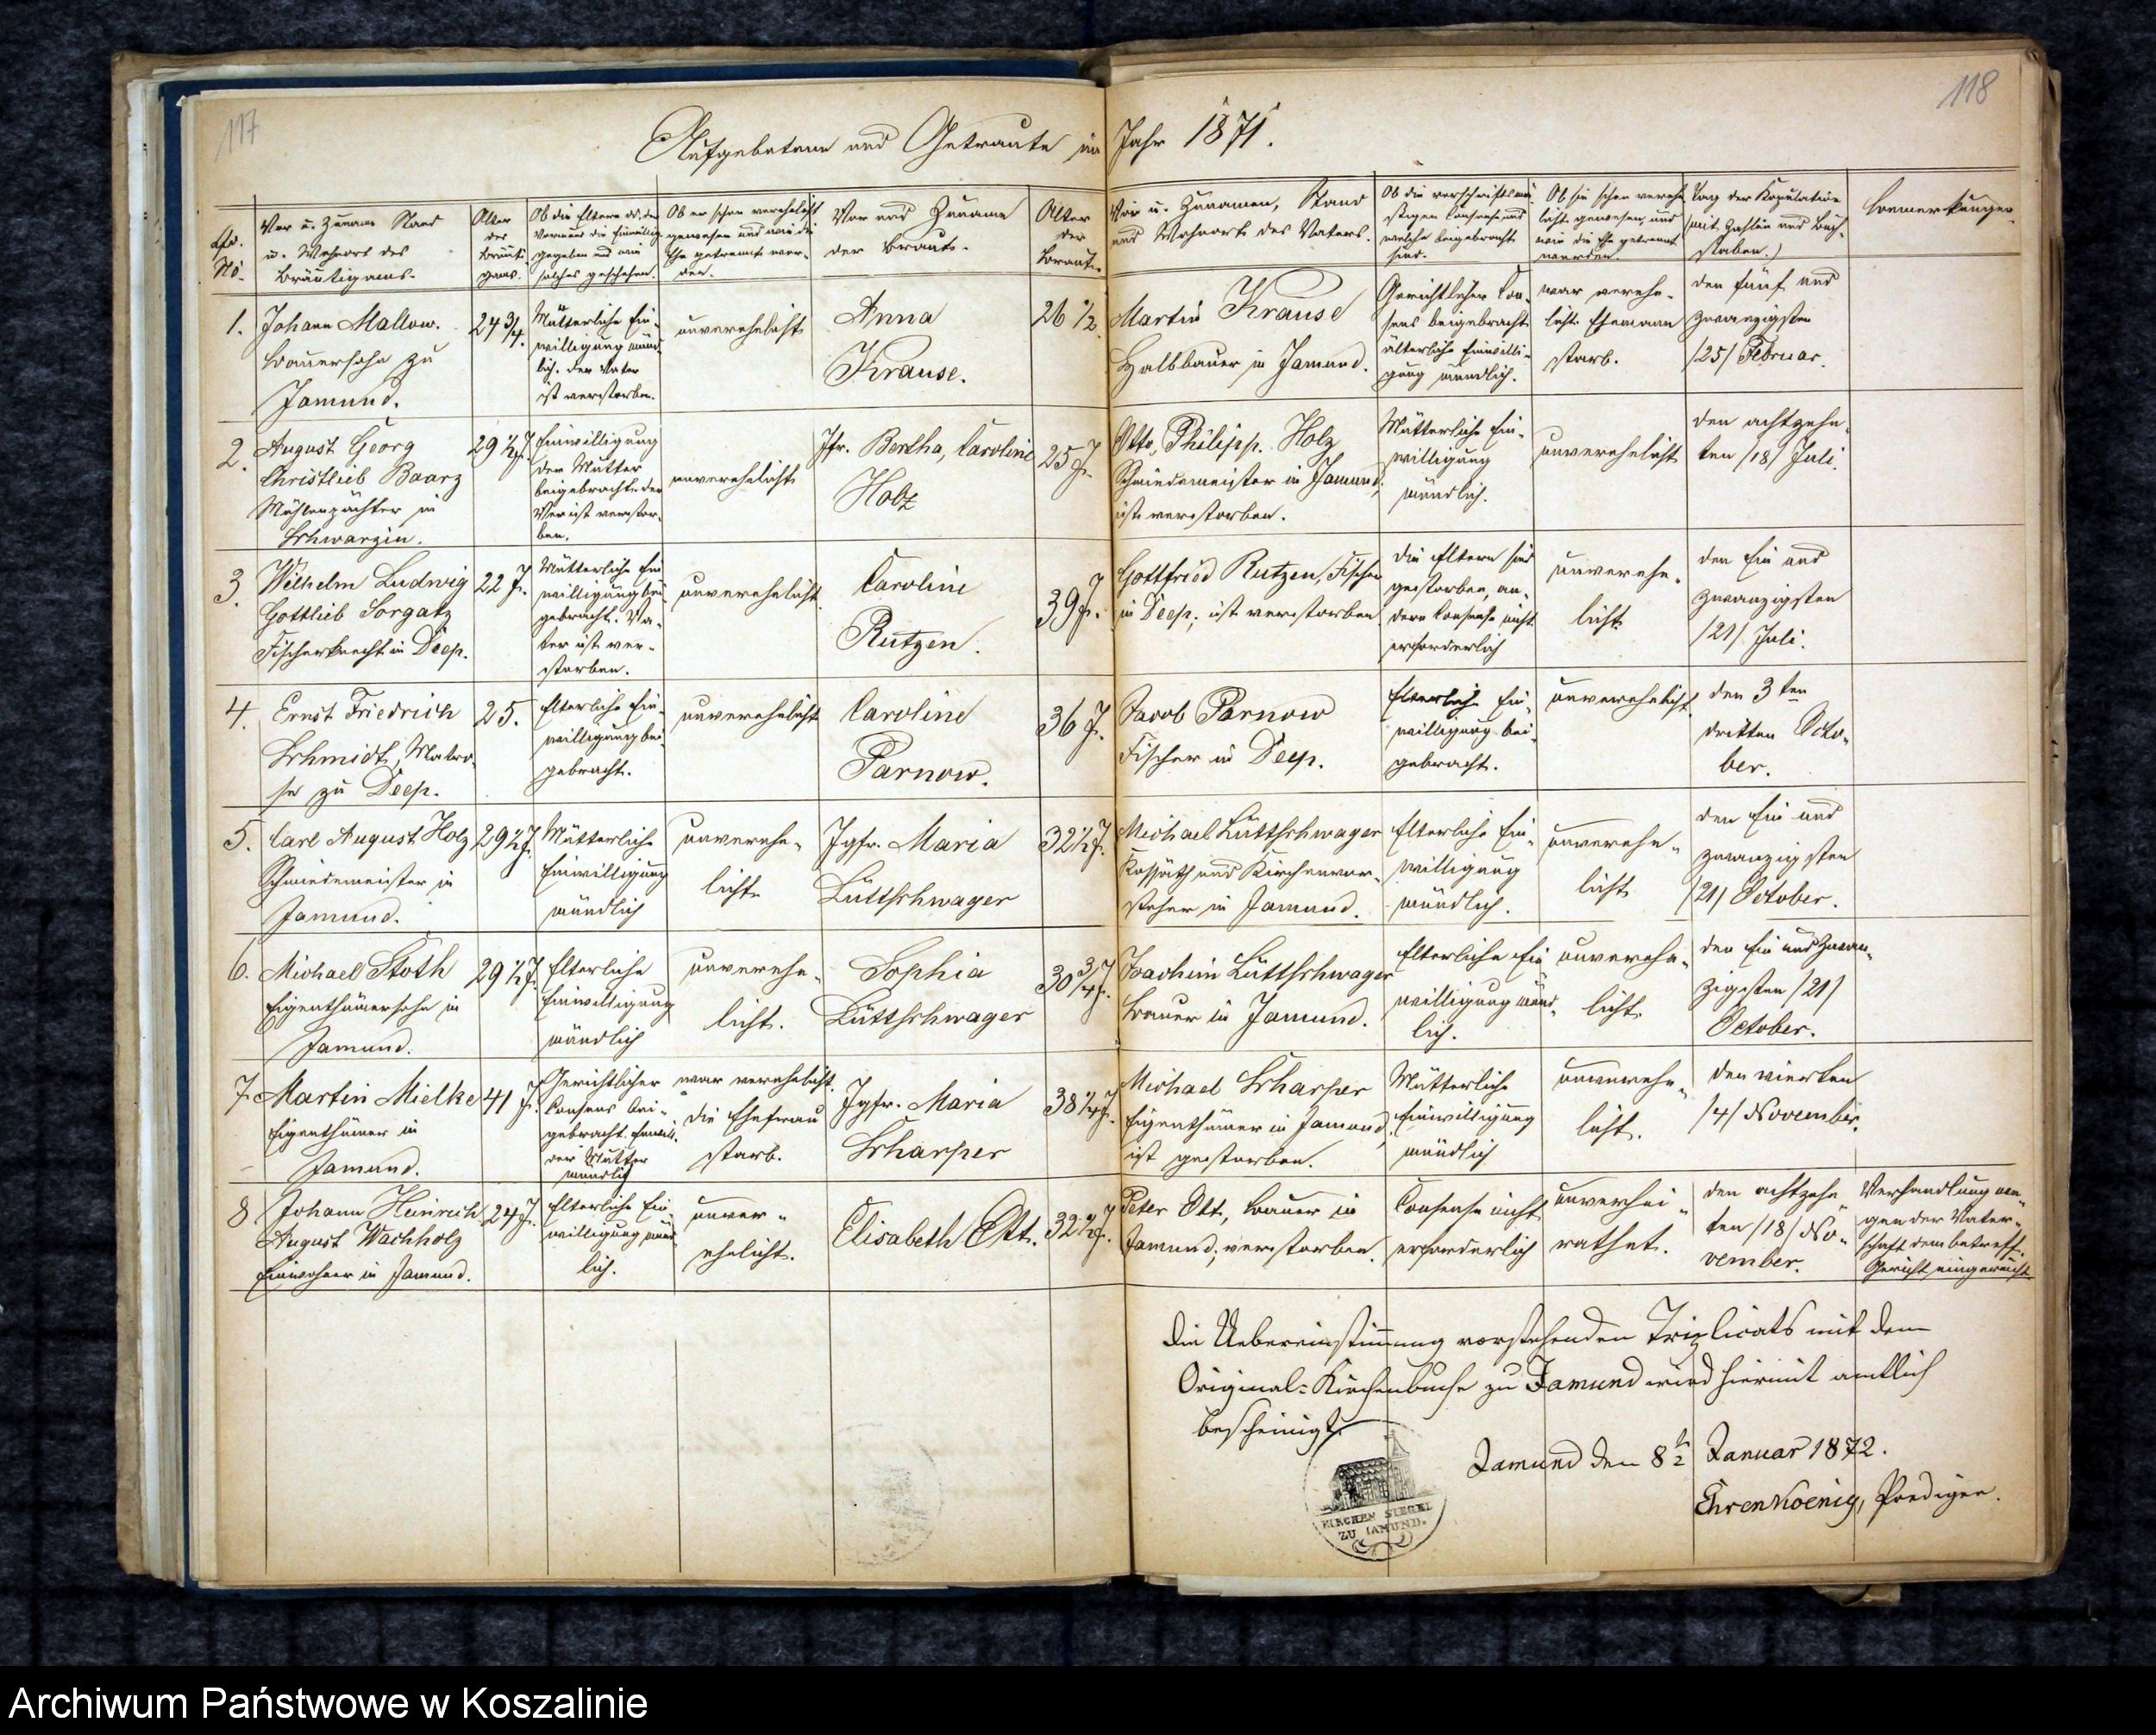 117
118
Aufgebotene und Getraute im Jahr 1871.
No.
Vor u. Zuname Stand
u. Wohnort des
Bräutigams.
Alter
des
Bräuti-
gams.
Ob die Eltern od. der
Vormund die Einwillig.
gegeben und wie
solches geschehen.
Ob er schon verehelicht
gewesen und wie die
Ehe getrennt wor-
den.
Vor und Zuname
der Braut.
Alter
der
Braut.
Vor u. Zunamen, Stand
und Wohnort des Vaters.
Ob die vorschriftsmä-
ssigen Consense und
welche beigebracht
sind.
Ob sie schon verehe-
licht gewesen, und
wie die Ehe getrennt
worden.
Tag der Kopulation
(mit Zahlen und Buch-
staben.)
Bemerkungen.
1.
Johann Mallow.
Bauersohn zu
Jamund.
24 3/4.
Mütterliche Ein-
willigung münd-
lich. der Vater
ist verstorben.
unverehelicht
Anna
Krause.
26 1/2
Martin Krause
Halbbauer in Jamund.
Gerichtlicher Con-
sens beigebracht
älterliche Einwilli-
gung mündlich.
war verehe-
licht Ehemann
starb.
den fünf und
zwanzigsten
/25/ Februar.
2.
August Georg
Christlieb Baarz
Mühlenpächter in
Schwarzin.
29 1/2 J.
Einwilligung
der Mutter
beigebracht. der
Vater ist verstor-
ben.
unverehelicht
Jfr. Bertha, Caroline
Holz
25 J.
Otto, Philipp. Holz
Schmiedemeister in Jamund,
ist verstorben.
Mütterliche Ein-
willigung
mündlich.
unverehelicht
den achtzehn-
ten /18/ Juli.
3.
Wilhelm Ludwig
Gottlieb Sorgatz
Fischerknecht in Deep.
22 J.
Mütterliche Ein
willigung bei-
gebracht. Va-
ter ist ver-
storben.
unverehelicht.
Caroline
Rutzen.
39 J.
Gottfried Rutzen, Fischer
in Deep, ist verstorben
Die Eltern sind
gestorben, an-
dere Consense nicht
erforderlich
unverehe-
licht
den Ein und
zwanzigsten
/21/ Juli.
4.
Ernst Friedrich
Schmidt, Matro-
se zu Deep.
25.
Elterliche Ein-
willigung bei-
gebracht.
unverehelicht
Caroline
Parnow.
36 J.
Jacob Parnow
Fischer in Deep.
Elterliche Ein-
willigung bei-
gebracht.
unverehelicht.
den 3ten
dritten Octo-
ber.
5.
Carl August Holz
Schmiedemeister in
Jamund.
29 1/2 J.
Mütterliche
Einwilligung
mündlich
unverehe-
licht
Jgfr. Maria
Lüttschwager
32 1/2 J.
Michael Lüttschwager
Kossäth und Kirchenvor-
steher in Jamund.
Elterliche Ein-
willigung
mündlich.
unverehe-
licht
den Ein und
zwanzigsten
/21/ October.
6.
Michael Stoth
Eigenthümersohn in
Jamund.
29 1/2 J.
Elterliche
Einwilligung
mündlich
unverehe-
licht.
Sophia
Lüttschwager
30 3/4 J.
Joachim Lüttschwager
Bauer in Jamund.
Elterliche Ein
willigung münd-
lich.
unverehe-
licht
den Ein und zwan-
zigsten /21/
October.
7.
Martin Mielke
Eigenthümer in
Jamund.
41 J.
Gerichtlicher
Consens bei-
gebracht. Einwill.
der Mutter
mündlich
war verehelicht.
die Ehefrau
starb.
Jgfr. Maria
Scharper
38 1/4 J.
Michael Scharper
Eigenthümer in Jamund,
ist gestorben.
Mütterliche
Einwilligung
mündlich
unverehe-
licht.
den vierten
/4/ November.
8
Johann Heinrich
August Wachholz
Einwohner in Jamund.
24 J.
Elterliche Ein-
willigung münd-
lich.
unver-
ehelicht.
Elisabeth Ott.
32 1/2 J.
Peter Ott, Bauer in
Jamund, verstorben.
Consense nicht
erforderlich
unverhei-
rathet.
den achtzehn-
ten /18/ No-
vember.
Verhandlung we-
gen der Vater-
schaft dem betreff.
Gericht eingereicht
Die Uebereinstimmung vorstehenden Triplicats mit dem
Original-Kirchenbuche zu Jamund wird hiermit amtlich
bescheinigt.
Jamund den 8t Januar 1872.
Ehrenkoenig, Prediger.
KIRCHEN SIEGEL
ZU IAMUND.
Archiwum Państwowe w Koszalinie